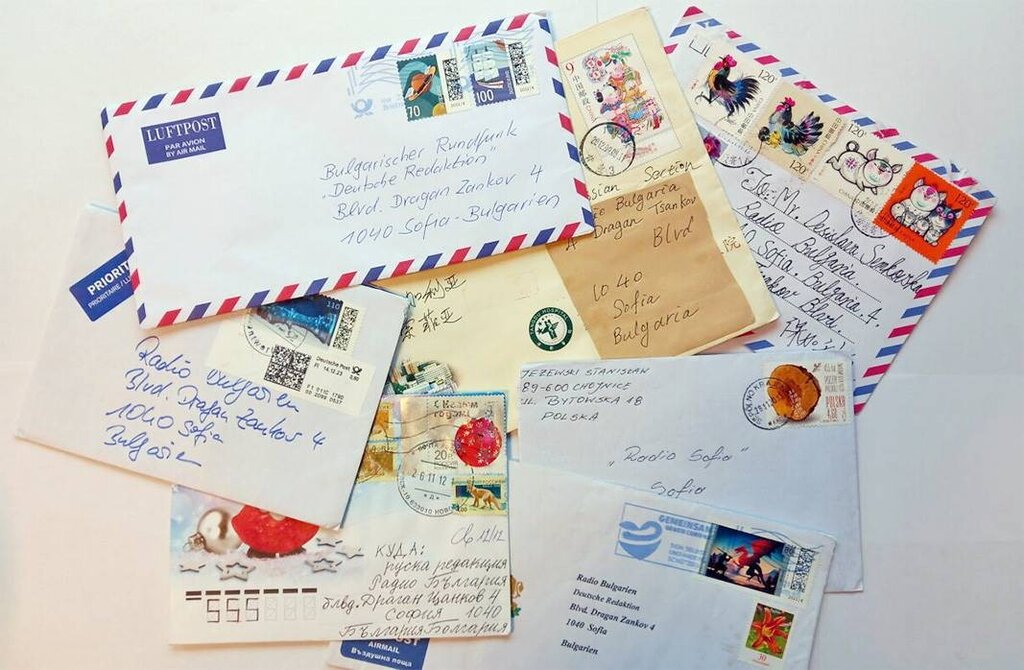 LUFTPOST
PAR AVION
BY AIR MAIL
70
100
Bulgarischer Rundfunk
"Deutsche Redaktion"
Blvd. Dragan Zankov 4
1040 Sofia-Bulgarien
9
中国邮政
Section
Bulgaria
Dragan Tsankov
Blvd
1040
Sofia
Bulgaria
利亚
索菲亚
院
120
120
120
120
To: Mr.
Radio Bulgaria.
Sofia. Bulgaria. 4.
Blvd.
PRIORIT
PRIORITAIRE/LU
110
Deutsche Post
FI 14.12.23
0,90
Radio Bulgarien
Blvd. Dragan Zankov 4
1040 Sofia
Bulgarien
JEZEWSKI STANISLAW
89-600 CHOJNICE
UL. BYTOWSKA 18
POLSKA
POLSKA
"Radio Sofia"
Sofia
годом
6 11 12
12/12
КУДА:
руска редакция
Радио България
блвд. Драган Цанков 4
София 1040
България Болгария
AIRMAIL
Въздушна поща
GEMEINSAM
Radio Bulgarien
Deutsche Redaktion
Blvd. Dragan Zankov 4
1040 Sofia
Bulgarien
30